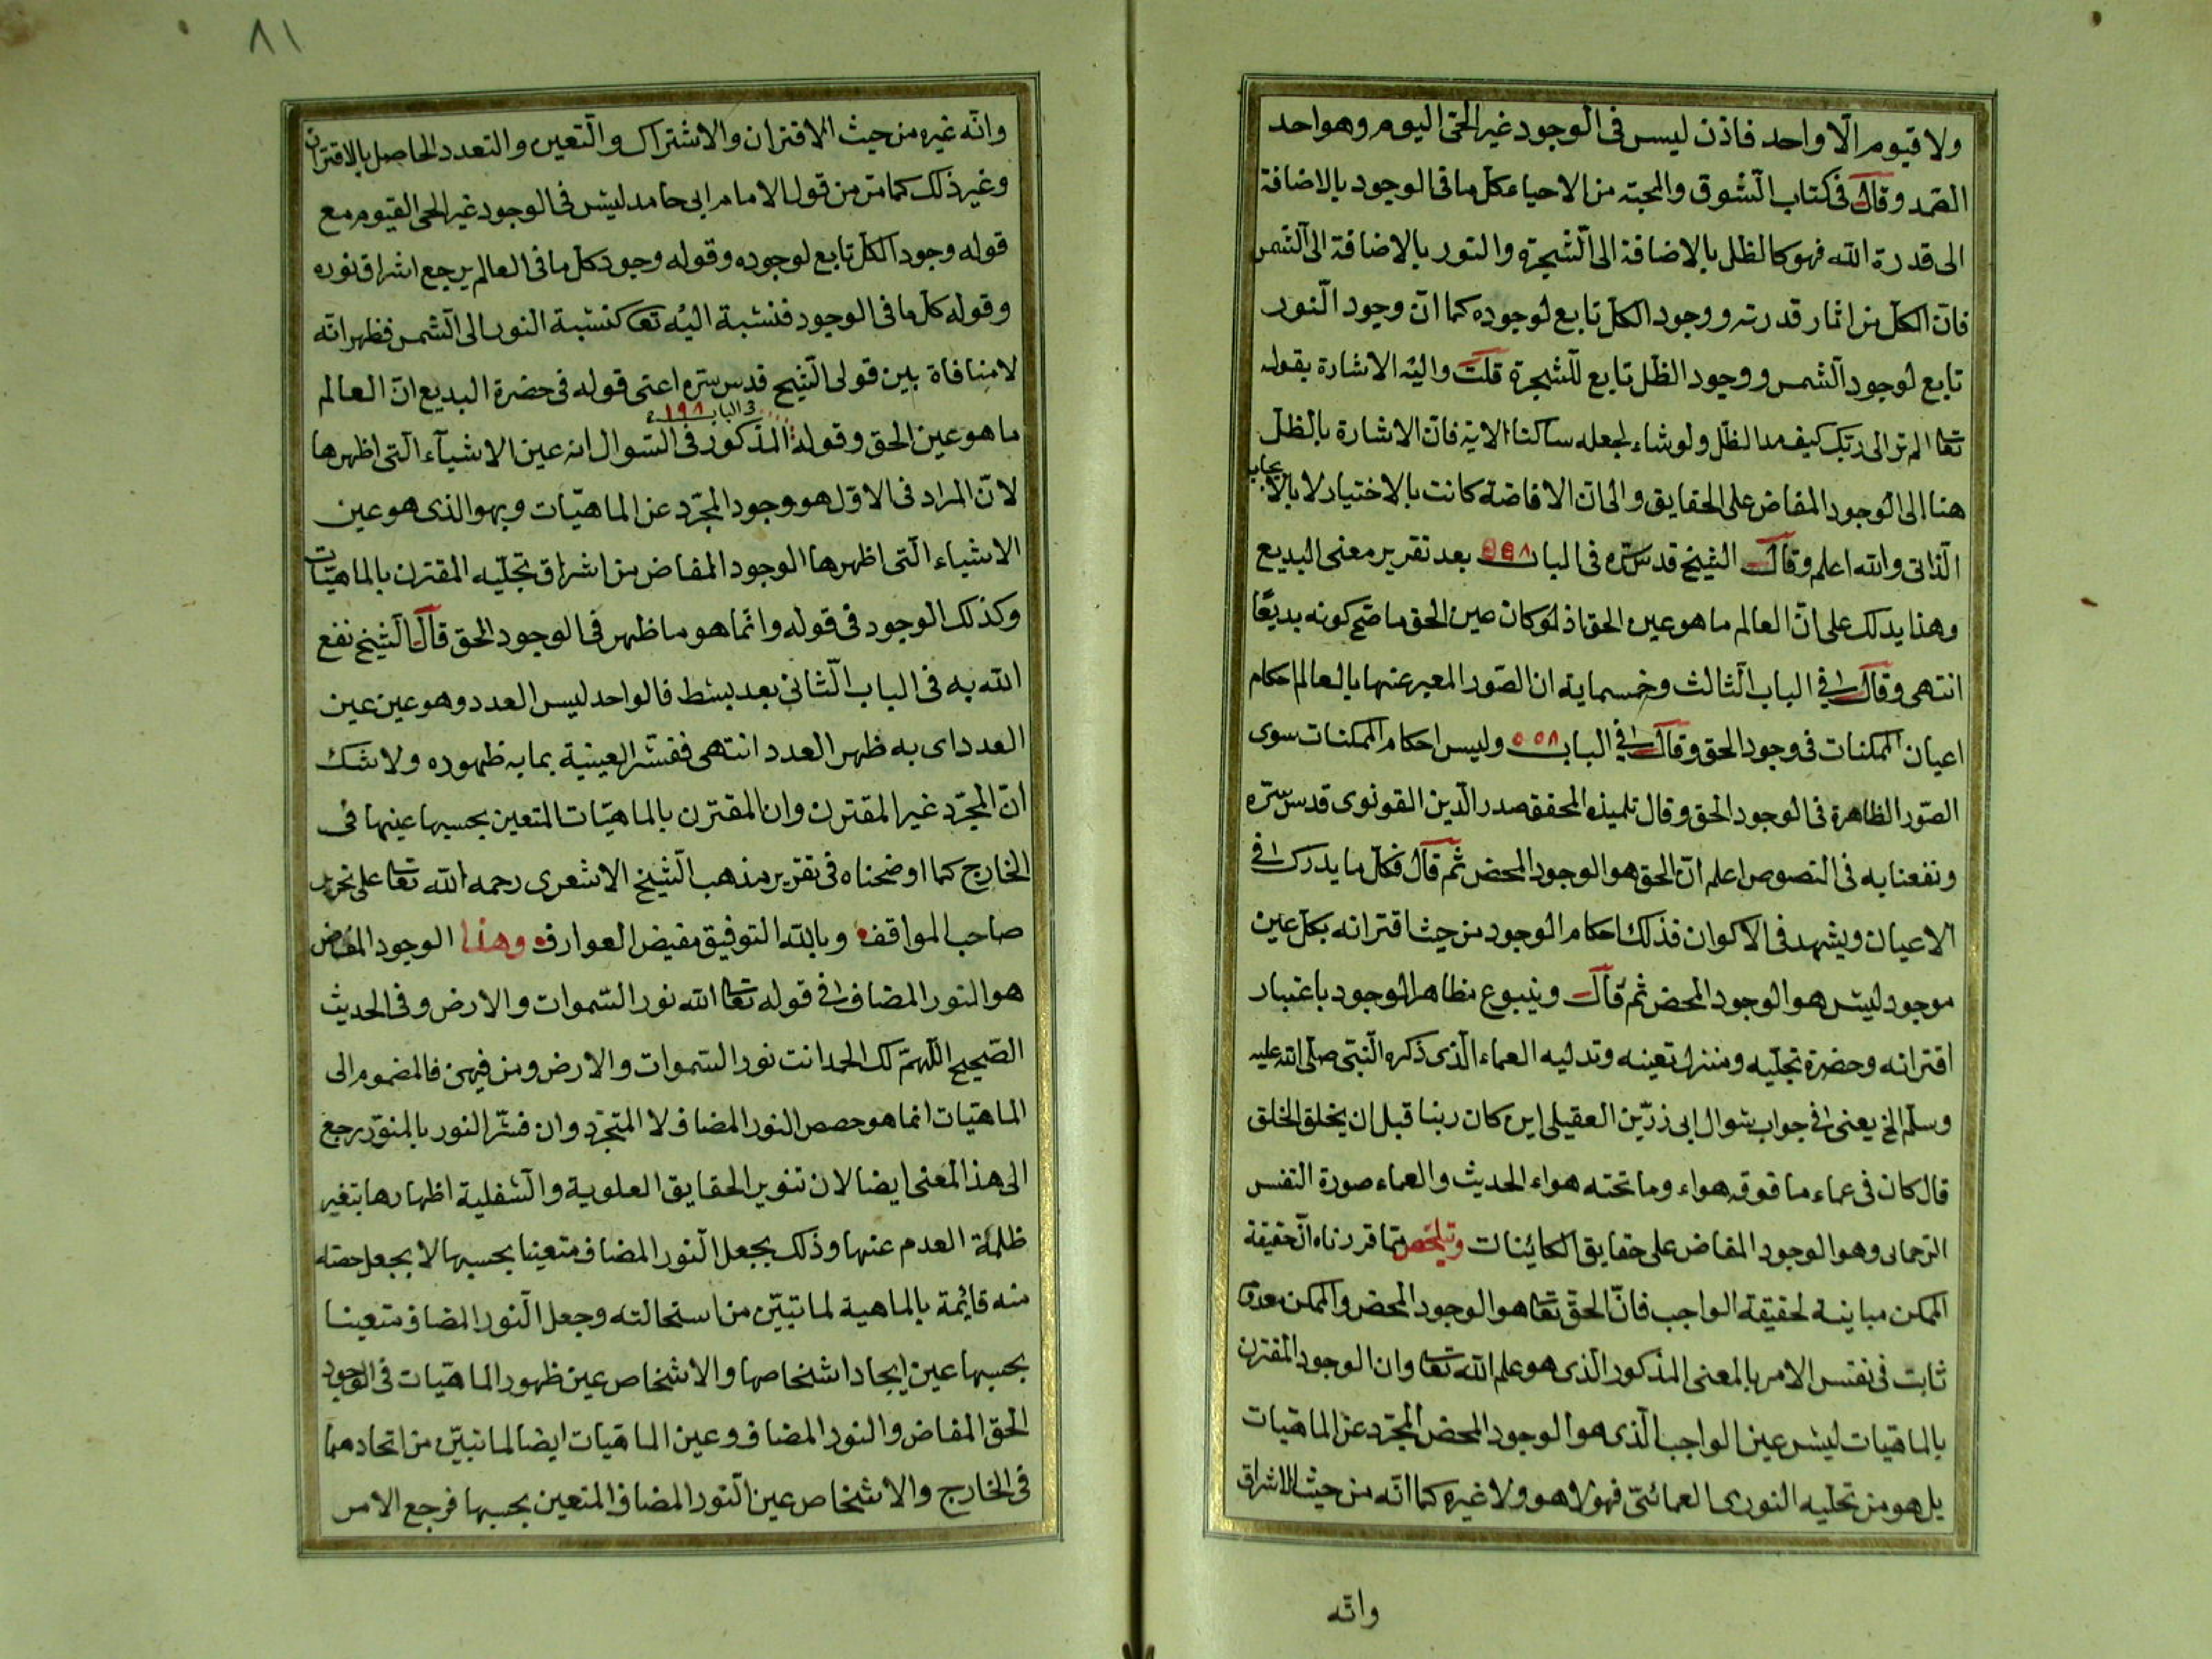 ولا قيوم الّا واحد فاذن ليس فى الوجود غير الحىّ اليوم وهو احد
الصّمد وقال فى كتاب الشّوق والمحبّه من الاحياء كلّ ما فى الوجود بالاضافة
الى قدرة الله فهو كالظل بالاضافة الى الشّجرة والنور بالاضافة الى الشّمس
فانّ الكلّ من اثار قدرته ووجود الكلّ تابع لوجوده كما انّ وجود النّور
تابع لوجود الشّمس ووجود الظّل تابع للشّجرة قلت واليه الاشارة بقوله
تعا الم تر الى ربّك كيف مد الظّل ولو شاء لجعله ساكنا الاية فانّ الاشارة بالظلّ
هنا الى الوجود المفاض على الحقايق والى انّ الافاضة كانت بالاختيار لا بالايجاب
الذّاتى والله اعلم وقال الشيخ قدس سّره فى الباب ٥٥٨ بعد تقرير معنى البديع
وهذا يدلك على انّ العالم ما هو عين الحق اذ لو كان عين الحق ما صحّ كونه بديعًا
انتهى وقال فى الباب الثّالث وخمسماية ان الصّور المعبر عنها بالعالم احكام
اعيان الممكنات فى وجود الحق وقال فى الباب ٥٥٨ وليس احكام الممكنات سوى
الصّور الظاهرة فى الوجود الحق وقال تلميذه المحقق صدر الدّين القونوى قدس سّره
ونفعنا به فى النصوص اعلم انّ الحق هو الوجود المحض ثم قال فكلّ ما يدرك فى
الاعيان ويشهد فى الاكوان فذلك احكام الوجود من حيث اقترانه بكلّ عين
موجود ليس هو الوجود المحض ثم قال وينبوع مظاهر الوجود باعتبار
اقترانه وحضرة تجلّيه ومنزل تعينه وتدليه العماء الّذى ذكره النّبى صلّى الله عليه
وسلّم الخ يعنى فى جواب سوال ابى رزّين العقيلى اين كان ربنا قبل ان يخلق الخلق
قال كان فى عماء ما فوقه هواء وما تحته هواء الحديث والعماء صورة النفس
الرّحمانى وهو الوجود المفاض على حقايق الكاينات وتلخّص ممّا قررناه انّ حقيقة
الممكن مباينة لحقيقة الواجب فانّ الحقّ تعا هو الوجود المحض والممكن معدوم
ثابت فى نفس الامر بالمعنى المذكور الّذى هو علم الله تعا وان الوجود المقترن
بالماهيات ليس عين الواجب الّذى هو الوجود المحض المجرّد عن الماهيات
بل هو من تجليه النورى العمائىّ فهو لا هو ولا غيره كما انّه من حيث الاشراق
وانّه
٨١
وانّه غيره من حيث الاقتران والاشتراك والتّعين والتعدد الحاصل بالاقتران
وغير ذلك كما مرّ من قول الامام ابى حامد ليس فى الوجود غير الحى القيوم مع
قوله وجود الكلّ تابع لوجوده وقوله وجود كلّ ما فى العالم يرجع اشراق نوره
وقوله كلّ ما فى الوجود فنسبة اليه تعا كنسبة النور الى الشّمس فظهر انّه
لا منافاة بين قولى الشّيخ قدس سّره اعنى قوله فى حضرة البديع انّ العالم
فى الباب ١٩٨
ما هو عين الحق وقوله المذكور فى السّوال انه عين الاشيآء الّتى اظهرها
لانّ المراد فى الاوّل هو وجود المجرّد عن الماهيّات وبهو الذى هو عين
الاشياء الّتى اظهرها الوجود المفاض من اشراق تجلّيه المقترن بالماهيّات
وكذلك الوجود فى قوله وانّما هو ما ظهر فى الوجود الحق قال الشّيخ نفع
الله به فى الباب الثّانى بعد بسط فالواحد ليس العدد وهو عين عين
العدد اى به ظهر العدد انتهى ففسّر العينية بما به ظهوره ولا شك
انّ المجرّد غير المقترن وان المقترن بالماهيّات المتعين بحسبها عينها فى
الخارج كما اوضحناه فى تقرير مذهب الشّيخ الاشعرى رحمه الله تعا على تحرير
صاحب المواقف وبالله التوفيق مفيض العوارف وهذا الوجود المفاض
هو النور المضاف فى قوله تعا الله نور السّموات والارض وفى الحديث
الصّحيح اللّهمّ لك الحمد انت نور السّموات والارض ومن فيهن فالمضموم الى
الماهيّات انما هو حصص النور المضاف لا المتجزّد وان فسّر النور بالمنوّر يرجع
الى هذا المعنى ايضا لان تنوير الحقايق العلوية والسّفلية اظهارها بتغير
ظلمة العدم عنها وذلك بجعل النّور المضاف متعينا بحسبها لا بجعل حصته
منه قائمة بالماهية لما تبيّن من استحالته وجعل النّور المضاف متعينا
بحسبها عين ايجاد اشخاصها والاشخاص عين ظهور الماهيّات فى الوجود
الحق المفاض والنور المضاف وعين الماهيات ايضا لما تبيّن من اتحادهما
فى الخارج والاشخاص عين النّور المضاف المتعين بحسبها فرجع الامر